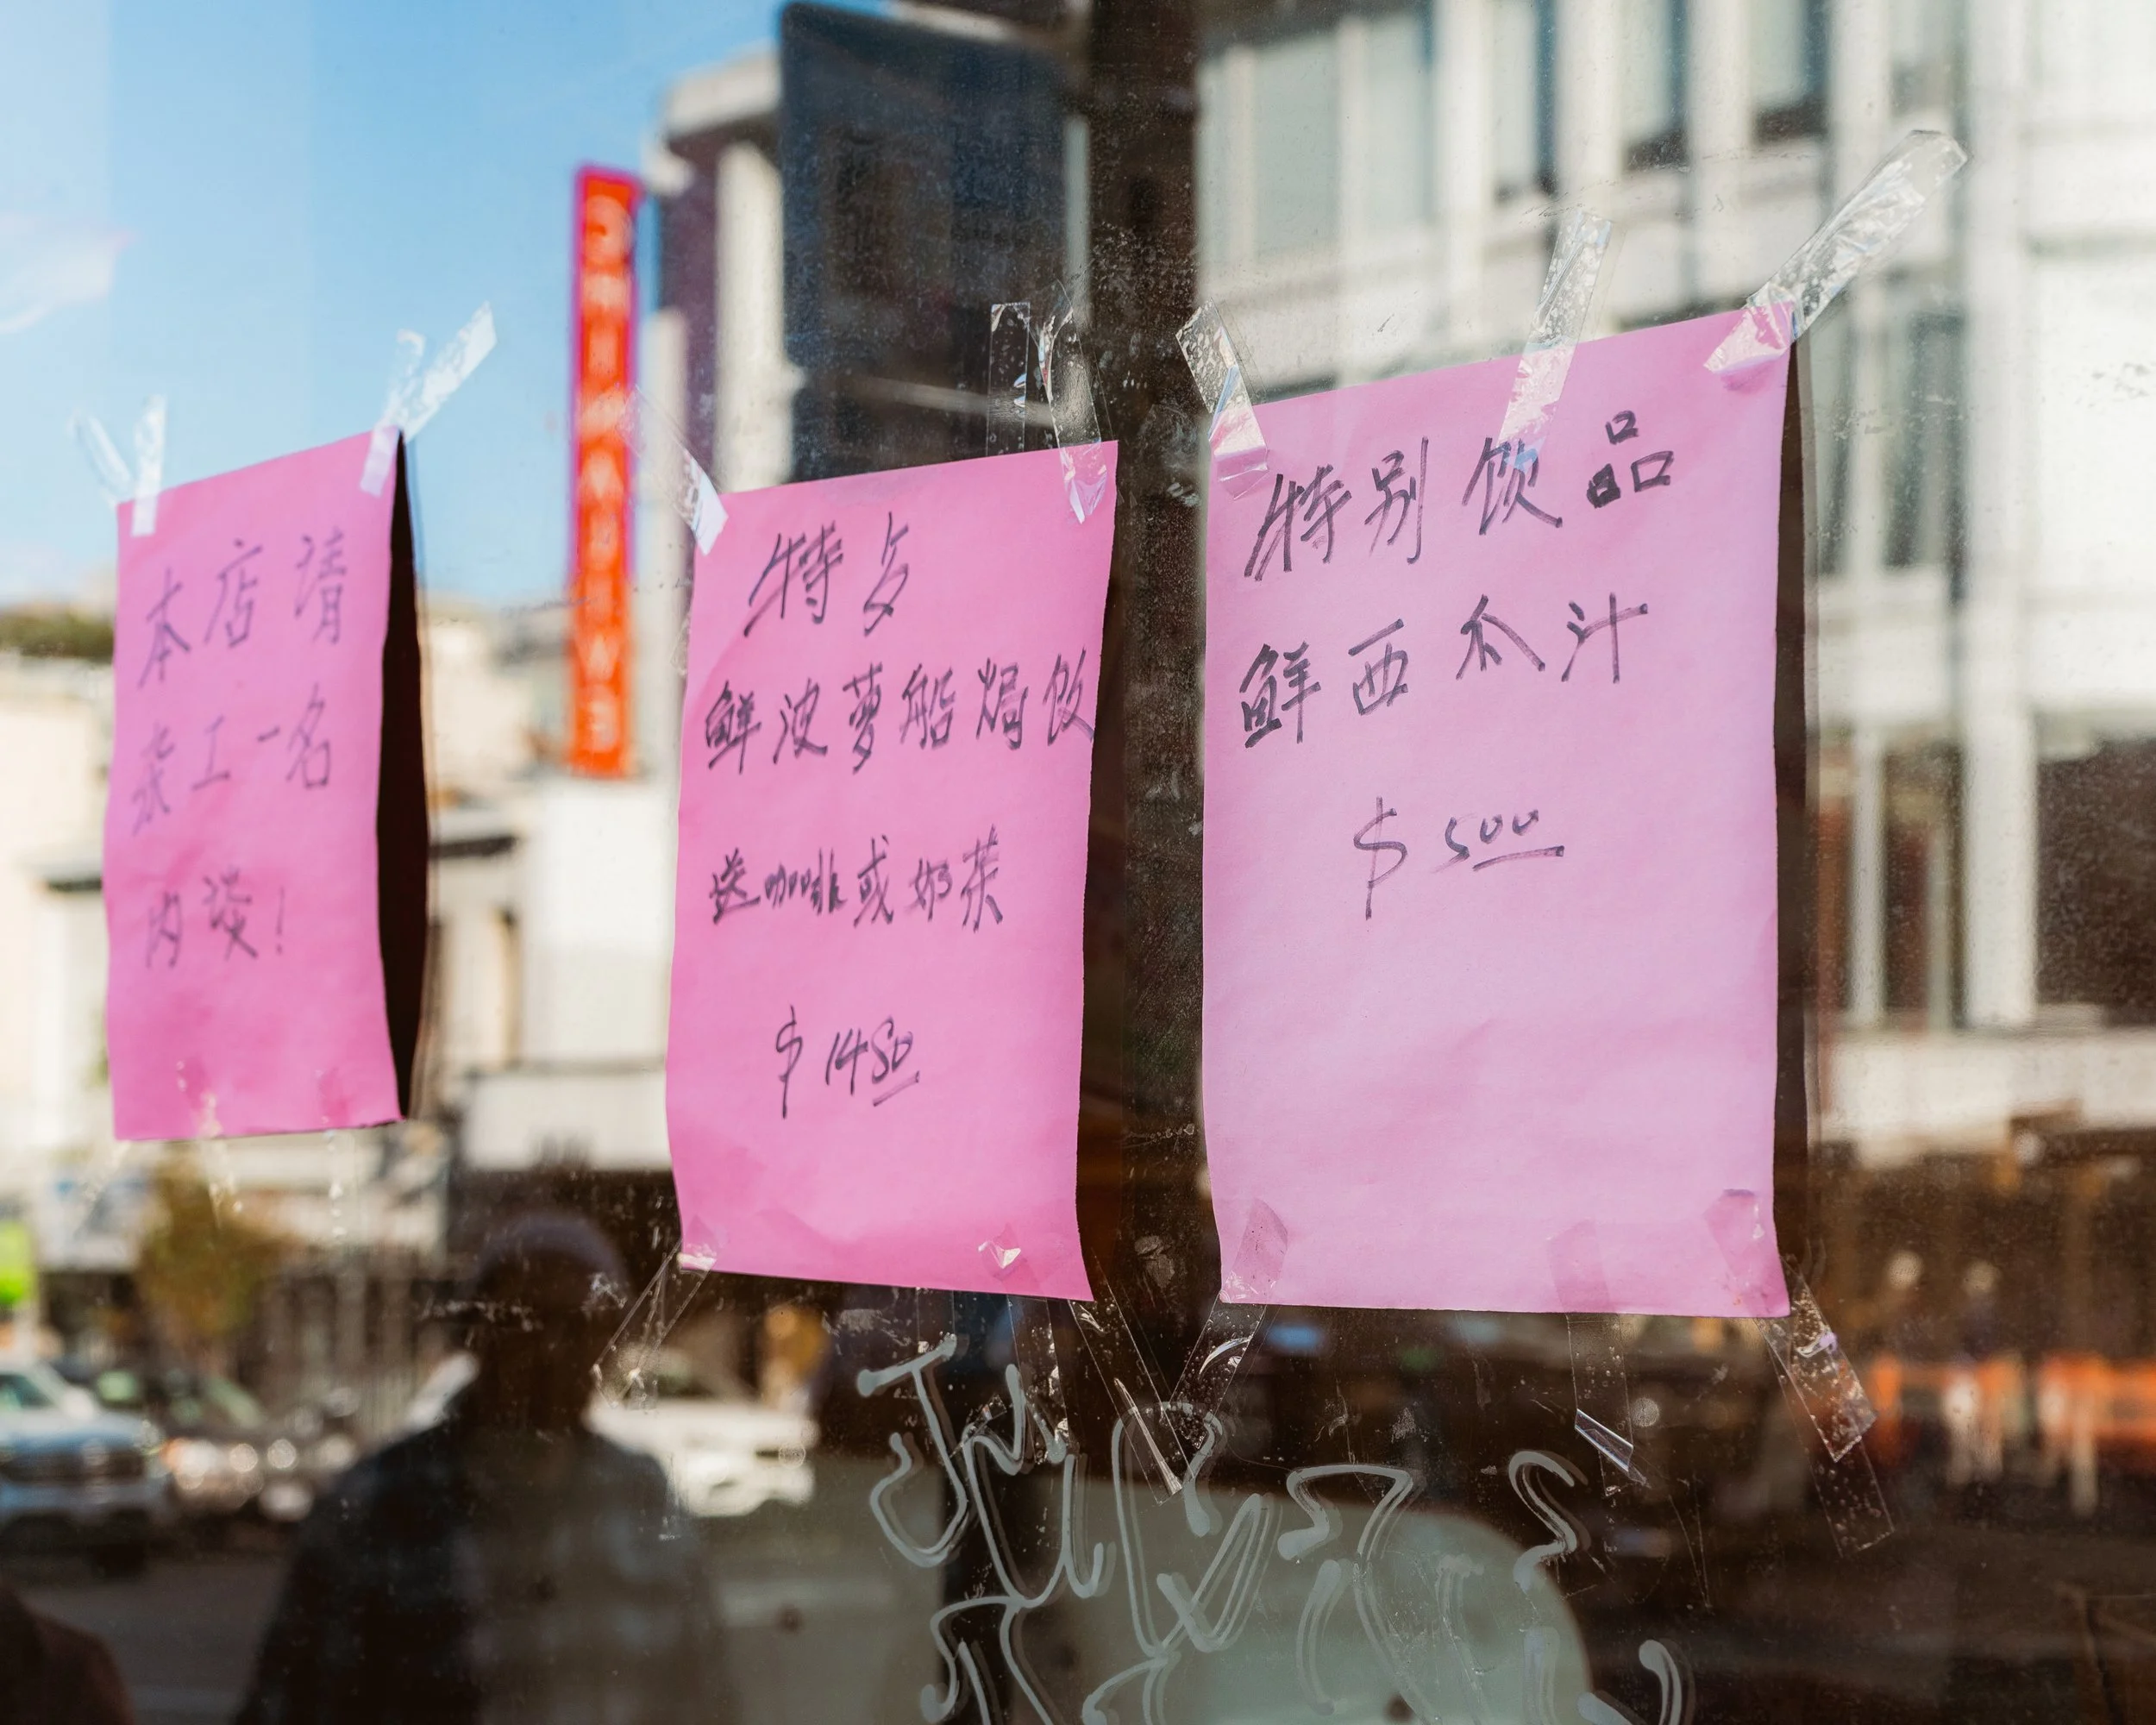 本店请
工一名
内谈!
特多
鲜波萝船焗饭
送咖啡或奶茶
$ 1450
特别饮品
鲜西瓜汁
$ 500